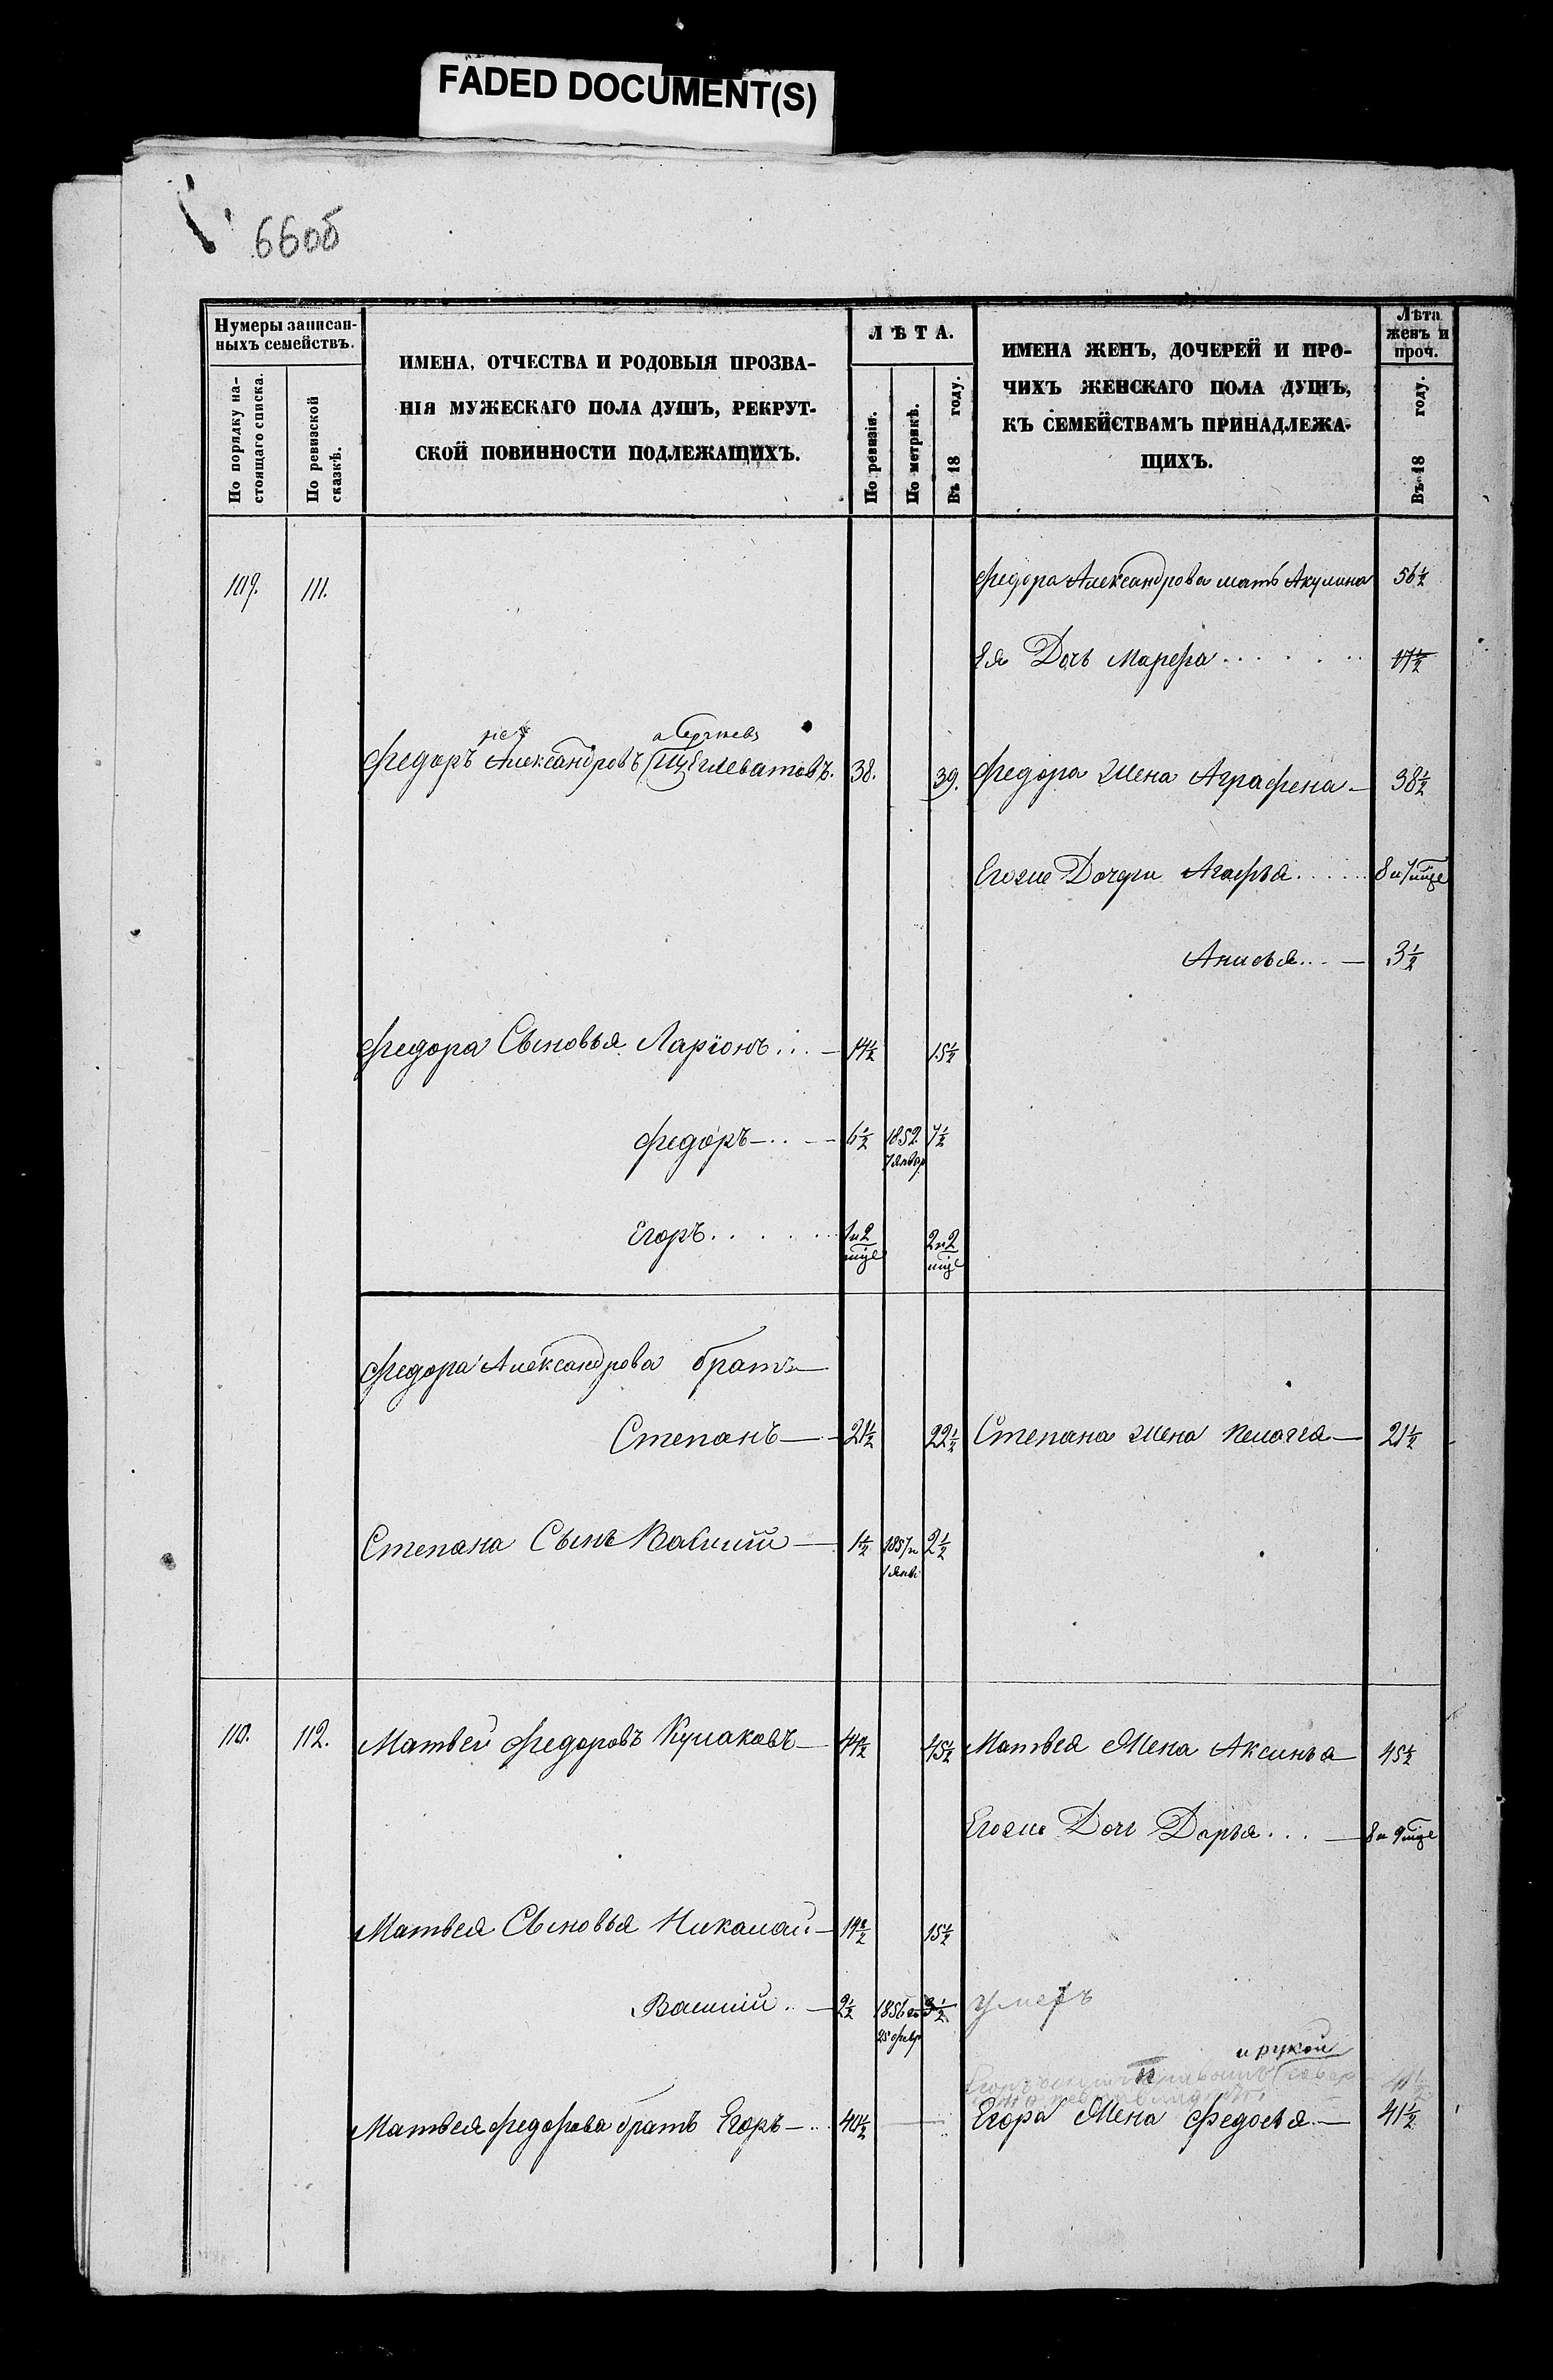 FADED DOCUMENT(S)
66об
Нумеры записан-
ныхъ семействъ.
По порядку на-
стоящаго списка.
По ревизской
сказкѣ.
ИМЕНА, ОТЧЕСТВА И РОДОВЫЯ ПРОЗВА-
НІЯ МУЖЕСКАГО ПОЛА ДУШЪ, РЕКРУТ-
СКОЙ ПОВИННОСТИ ПОДЛЕЖАЩИХЪ.
ЛѢТА.
По ревизіи.
По метрикѣ.
Въ 18 году.
ИМЕНА ЖЕНЪ, ДОЧЕРЕЙ И ПРО-
ЧИХЪ ЖЕНСКАГО ПОЛА ДУШЪ,
КЪ СЕМЕЙСТВАМЪ ПРИНАДЛЕЖА-
ЩИХЪ.
Лѣта
женъ и
проч.
Въ 18 году.
109. 111. Федора Александрова мать Акулина 56½
Ея Дочь Марефа 17½
не а Сергѣевъ
Федоръ Александровъ Щеглеватовъ. 38. 39. Федора жена Аграфена 38½
Егоже Дочери Агафья 8 и 7 мѣце
Анисья 3½
Федора Сыновья Ларіонъ 14½ 15½
Федоръ 6½ 1852 7½
7 Январ
Егоръ 1 и 2 2 и 2
мѣце мѣце
Федора Александрова братъ
Степанъ 21½ 22½ Степана жена Пелагея 21½
Степана Сынъ Василій 1½ 1857 го 2½
1 янв
110. 112. Матвей Федоровъ Кулаковъ 44½ 45½ Матвея Жена Аксинья 45½
Егоже Дочь Дарья 8 и 9 мѣце
Матвея Сыновья Николай 14½ 15½
Василий 2½ 1856 го 3½ умеръ
25 февр
и рукой
Матвея Федорова братъ Егоръ 40½ Егора Жена Федосья 41½